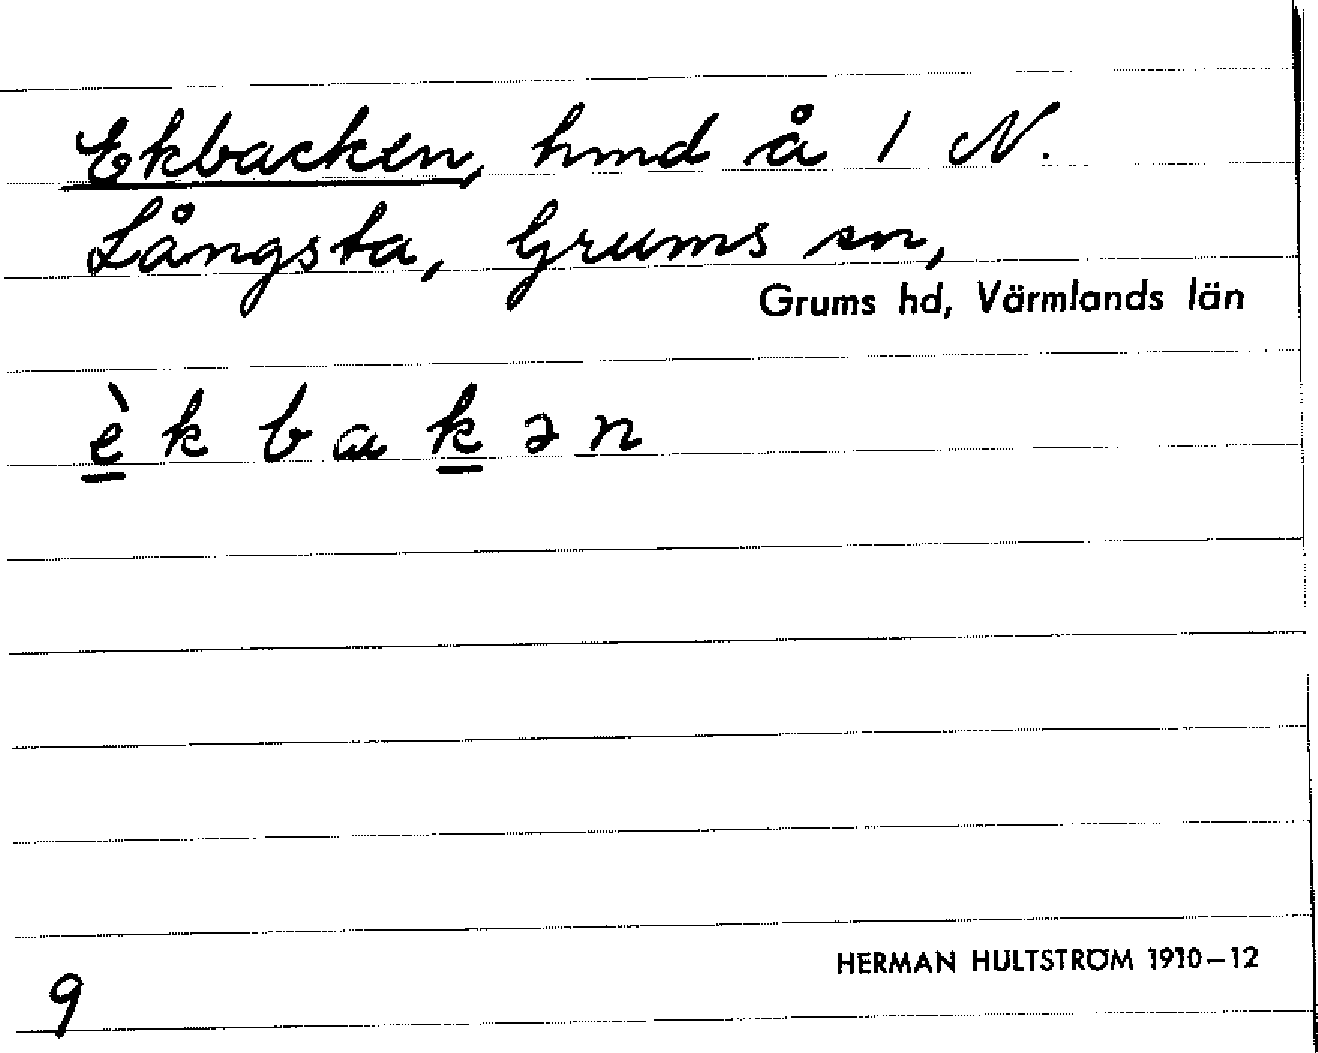 Ekbacken, hmd å 1 N.
Långsta, Grums sn,
Grums hd, Värmlands län
è k b a k ə n
HERMAN HULTSTRÖM 1910–12
9